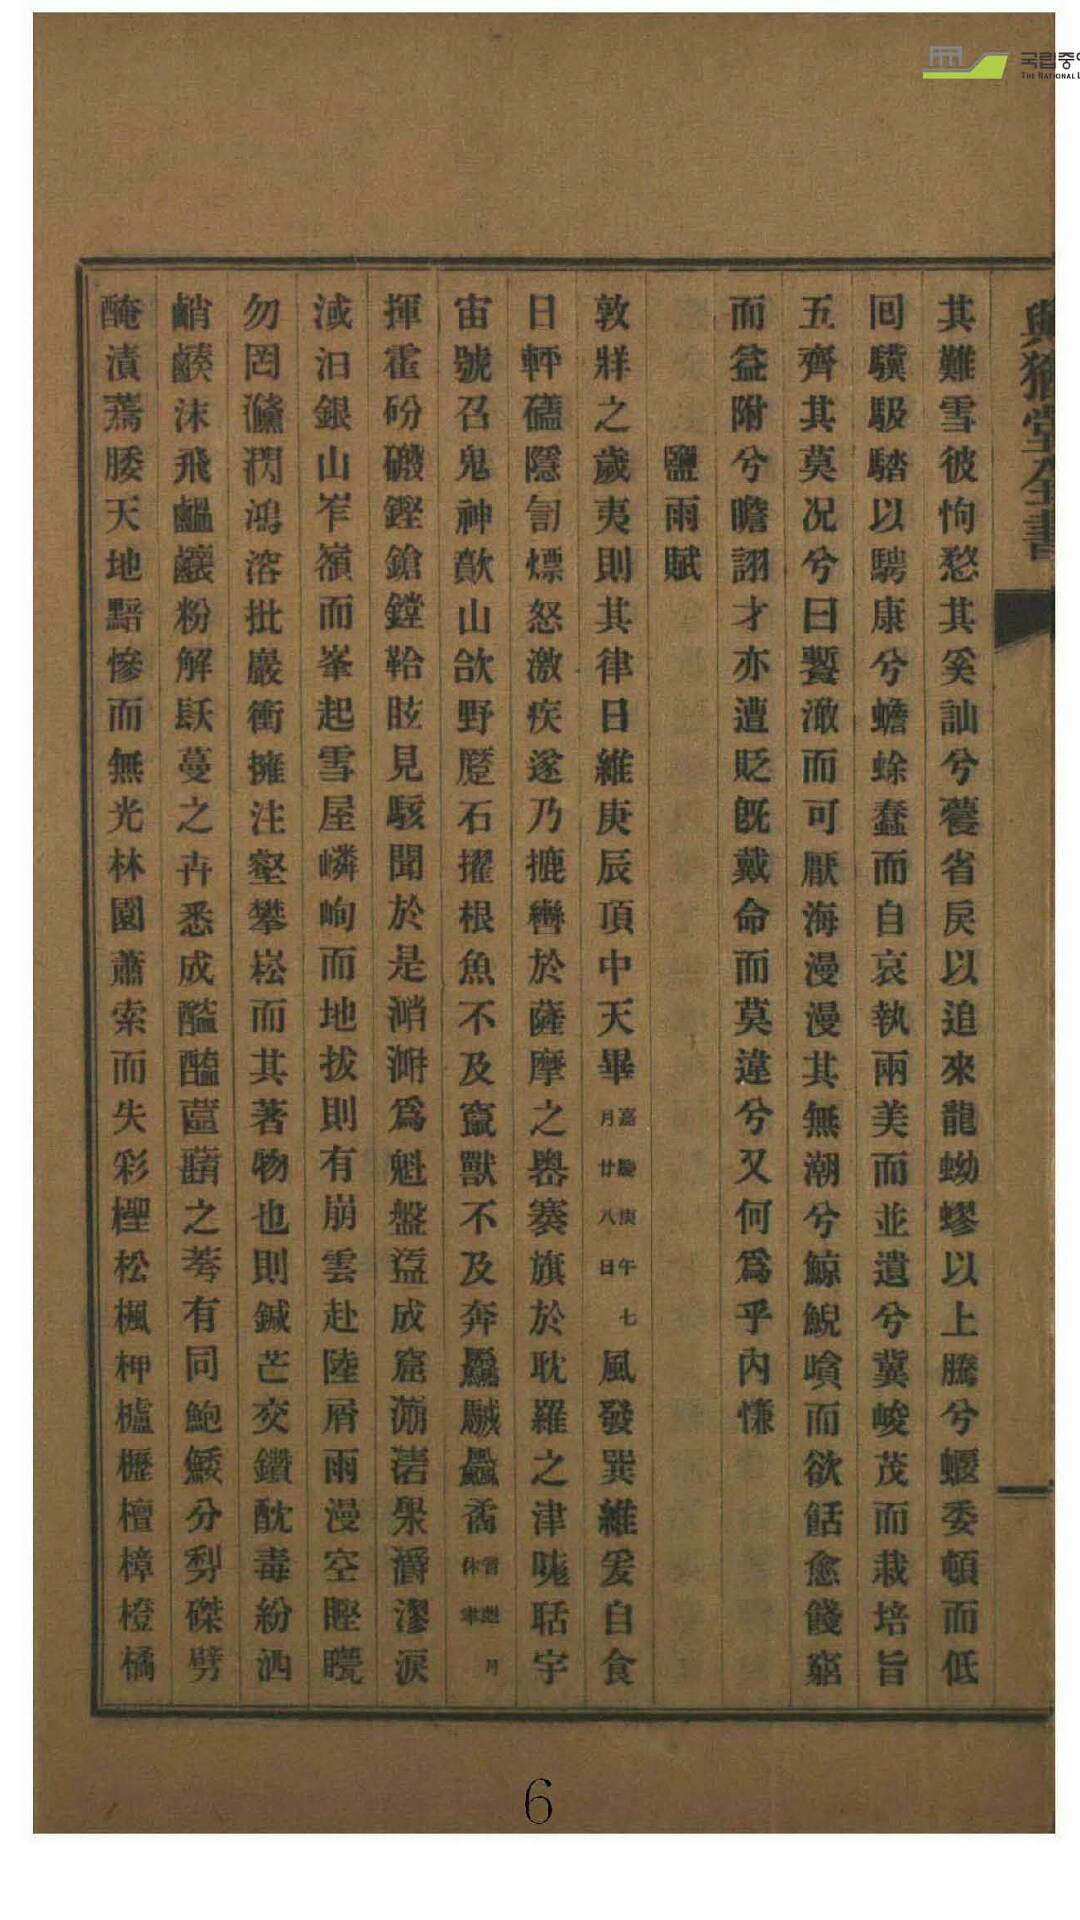 與猶堂全書
其難雪彼恂愗其奚訕兮虁省戾以追來龍蚴蟉以上騰兮蝘委頓而低
回驥馺騞以騁康兮蟾蜍蠢而自哀執兩美而並遺兮冀峻茂而栽培旨
五齊其莫况兮曰饗澉而可厭海漫漫其無潮兮鯨鯢嗿而欲餂愈餞窮
而益附兮瞻詡才亦遭貶旣戴命而莫違兮又何爲乎內慊
鹽雨賦
敦牂之歲夷則其律日維庚辰頂中天畢嘉慶庚午七月廿八日風發巽維爰自食
日軯礚隱訇熛怒激疾遂乃摝轡於薩摩之嶴搴旗於耽羅之津咙聒宇
宙號召鬼神歕山欱野蹷石擢根魚不及竄獸不及奔
揮霍砏磤鏗鎗鏜鞈眩見駭聞於是潲溿爲魁盤盓成窟渤潪㶁灂漻淚
淢汩銀山岝嶺而峯起雪屋嶙峋而地拔則有崩雲赴陸屑雨漫空瞘
勿罔濦閃鴻溶批巖衝擁注壑攀崧而其著物也則鍼芒交鑽酖毒紛洒
沫飛粉解镺蔓之卉悉成醓醢薀之蒡有同鮑鯘分剺磔劈
醃漬蔫腇天地黯慘而無光林園蕭索而失彩檉松楓柙櫨櫪檀樟橙橘
6